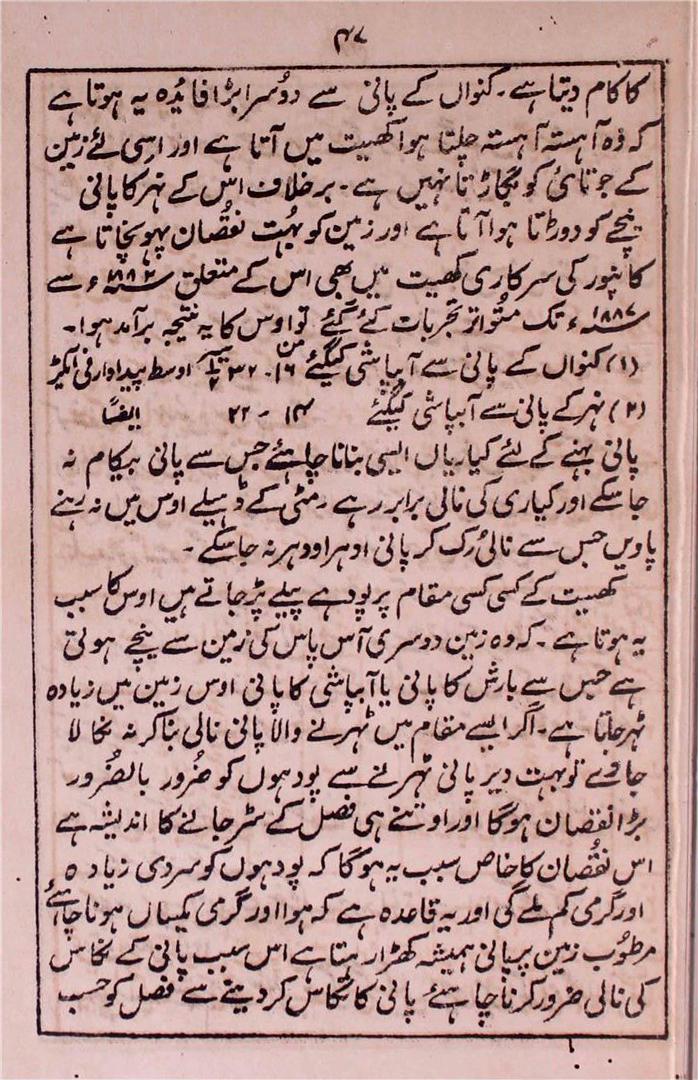 ۴۷
کا کام دیتا ہے۔ کنواں کے پانی سے دوُسرا بڑا فایُدہ یہ ہوتا ہے
کہ وُہ آہستہ آہستہ چلتا ہوا کھیت میں آتا ہے اور اسِی لئے زمین
کے جوتائی کو بگاڑتا نہیں ہے۔ برخلاف اس کے نہر کا پانی
نیچے کو دوڑتا ہوا آتا ہے اور زمین کو بہُت نقصُان پہونچاتا ہے
کانپور کی سرکاری کھیت میں بھی اس کے متعلق سنہ ۱۸۸۲ء سے
سنہ ۱۸۸۷ء تک متُواتر تجربات کئے گئے تو اوس کا یہ نتیجہ برآمد ہوا۔
(۱) کنواں کے پانی سے آبپاشی کیگئے ۱۶ من ۔ ۳۲ اوسط پیداوار فی ایکڑ
(۲) نہر کے پانی سے آبپاشی کیگئے ۱۴ - ۲۲ ایضًا
پانی بہنے کے لئے کیاریاں ایسی بنانا چاہئے جس سے پانی بیکام نہ
جا سکے اور کیاری کی نالی برابر رہے ۔ مٹی کے ڈہیلے اوس میں نہ رہنے
پاویں جس سے نالی رُک کر پانی اوہر اووہر نہ جاسکے ۔
کھیت کے کسی کسی مقام پر پودہے پیلے پڑجاتے ہیں اوس کا سبب
یہ ہوتا ہے ۔ کہ وہ زمین دوسری آس پاس کی زمین سے نیچے ہوتی
ہے جس سے بارش کا پانی یا آبپاشی کا پانی اوس زمین میں زیادہ
ٹہر جاتا ہے۔ اگر ایسے مقام میں ٹہرنے والا پانی نالی بناکر نہ نکالا
جاوے تو بہت دیر پانی ٹہرنے سے پودہوں کو ضرُور بالضرُور
بڑا نقصان ہوگا اور اوتنے ہی فصل کے سٹر جانے کا اندیشہ ہے
اس نقصُان کا خاص سبب یہ ہوگا کہ پودہوں کو سردی زیادہ
اور گرمی کم ملے گی اور یہ قاعدہ ہے کہ ہوا اور گرمی یکساں ہونا چاہئے
مرطوُب زمین پر پانی ہمیشہ کھڑا رہتا ہے اس سبب پانی کے نکاس
کی نالی ضرور کرنا چاہئے پانی کا نکاس کر دینے سے فصل کو حسب